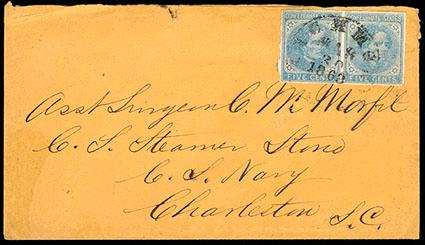 CONFEDERATE STATES CONFEDERATE STATES
FIVE CENTS FIVE CENTS
Asst Surgeon C. M. Morfit
C. S. Steamer Stono
C. S. Navy
Charleston S.C.